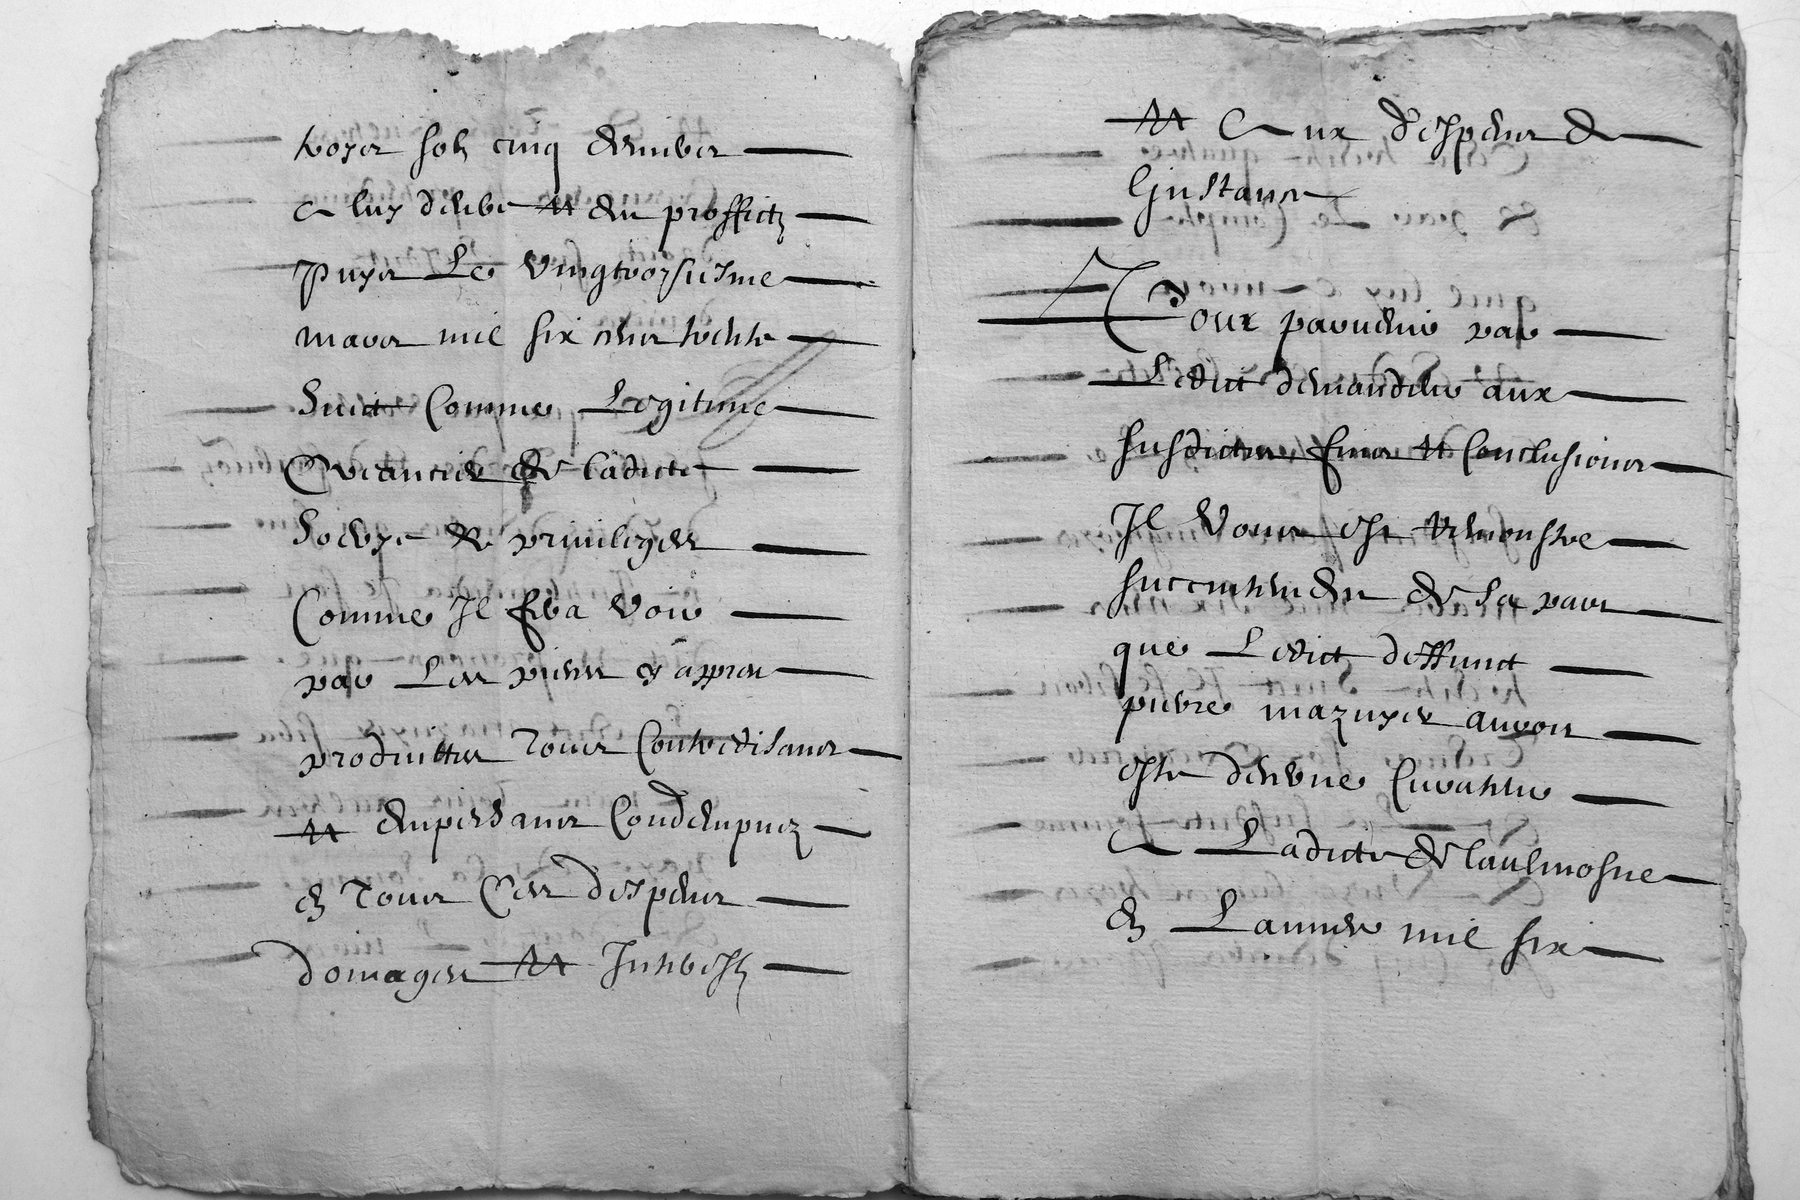 troys solz cinq deniers
a luy deube et du proffict
puys Le vingtroysiesme
mars mil six cens trente
huict Comme Legitime
Creancier de ladicte
hoeyrie de privileges
Comme Il fera voir
par Les pieces cy appres
produittes Tous Contredisans
et empeschans Condempnez
en Tous Ces despens
domages et Interestz
et Ceux despens de
Linstance
Pour parvenir par
Ledict demandeur aux
susdictes fins et Conclusions
Il Vous est remonstre
succintement de sa part
que Ledict deffunct
pierre mazuyer auroit
este denvne Curatteur
a Ladicte de laulmosne
en Lannee mil six